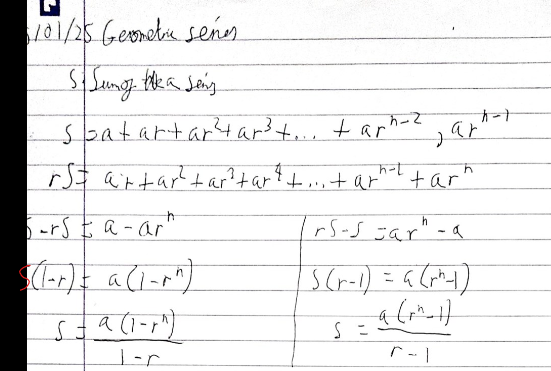 5/01/25 Geometric series
S: Sum of a series
S = a + ar + ar² + ar³ + ... + arⁿ⁻², arⁿ⁻¹
rS = ar + ar² + ar³ + ar⁴ + ... + arⁿ⁻¹ + arⁿ
S - rS = a - arⁿ
S(1-r) = a(1-rⁿ)
S = a(1-rⁿ) / 1-r
rS - S = arⁿ - a
S(r-1) = a(rⁿ-1)
S = a(rⁿ-1) / r-1